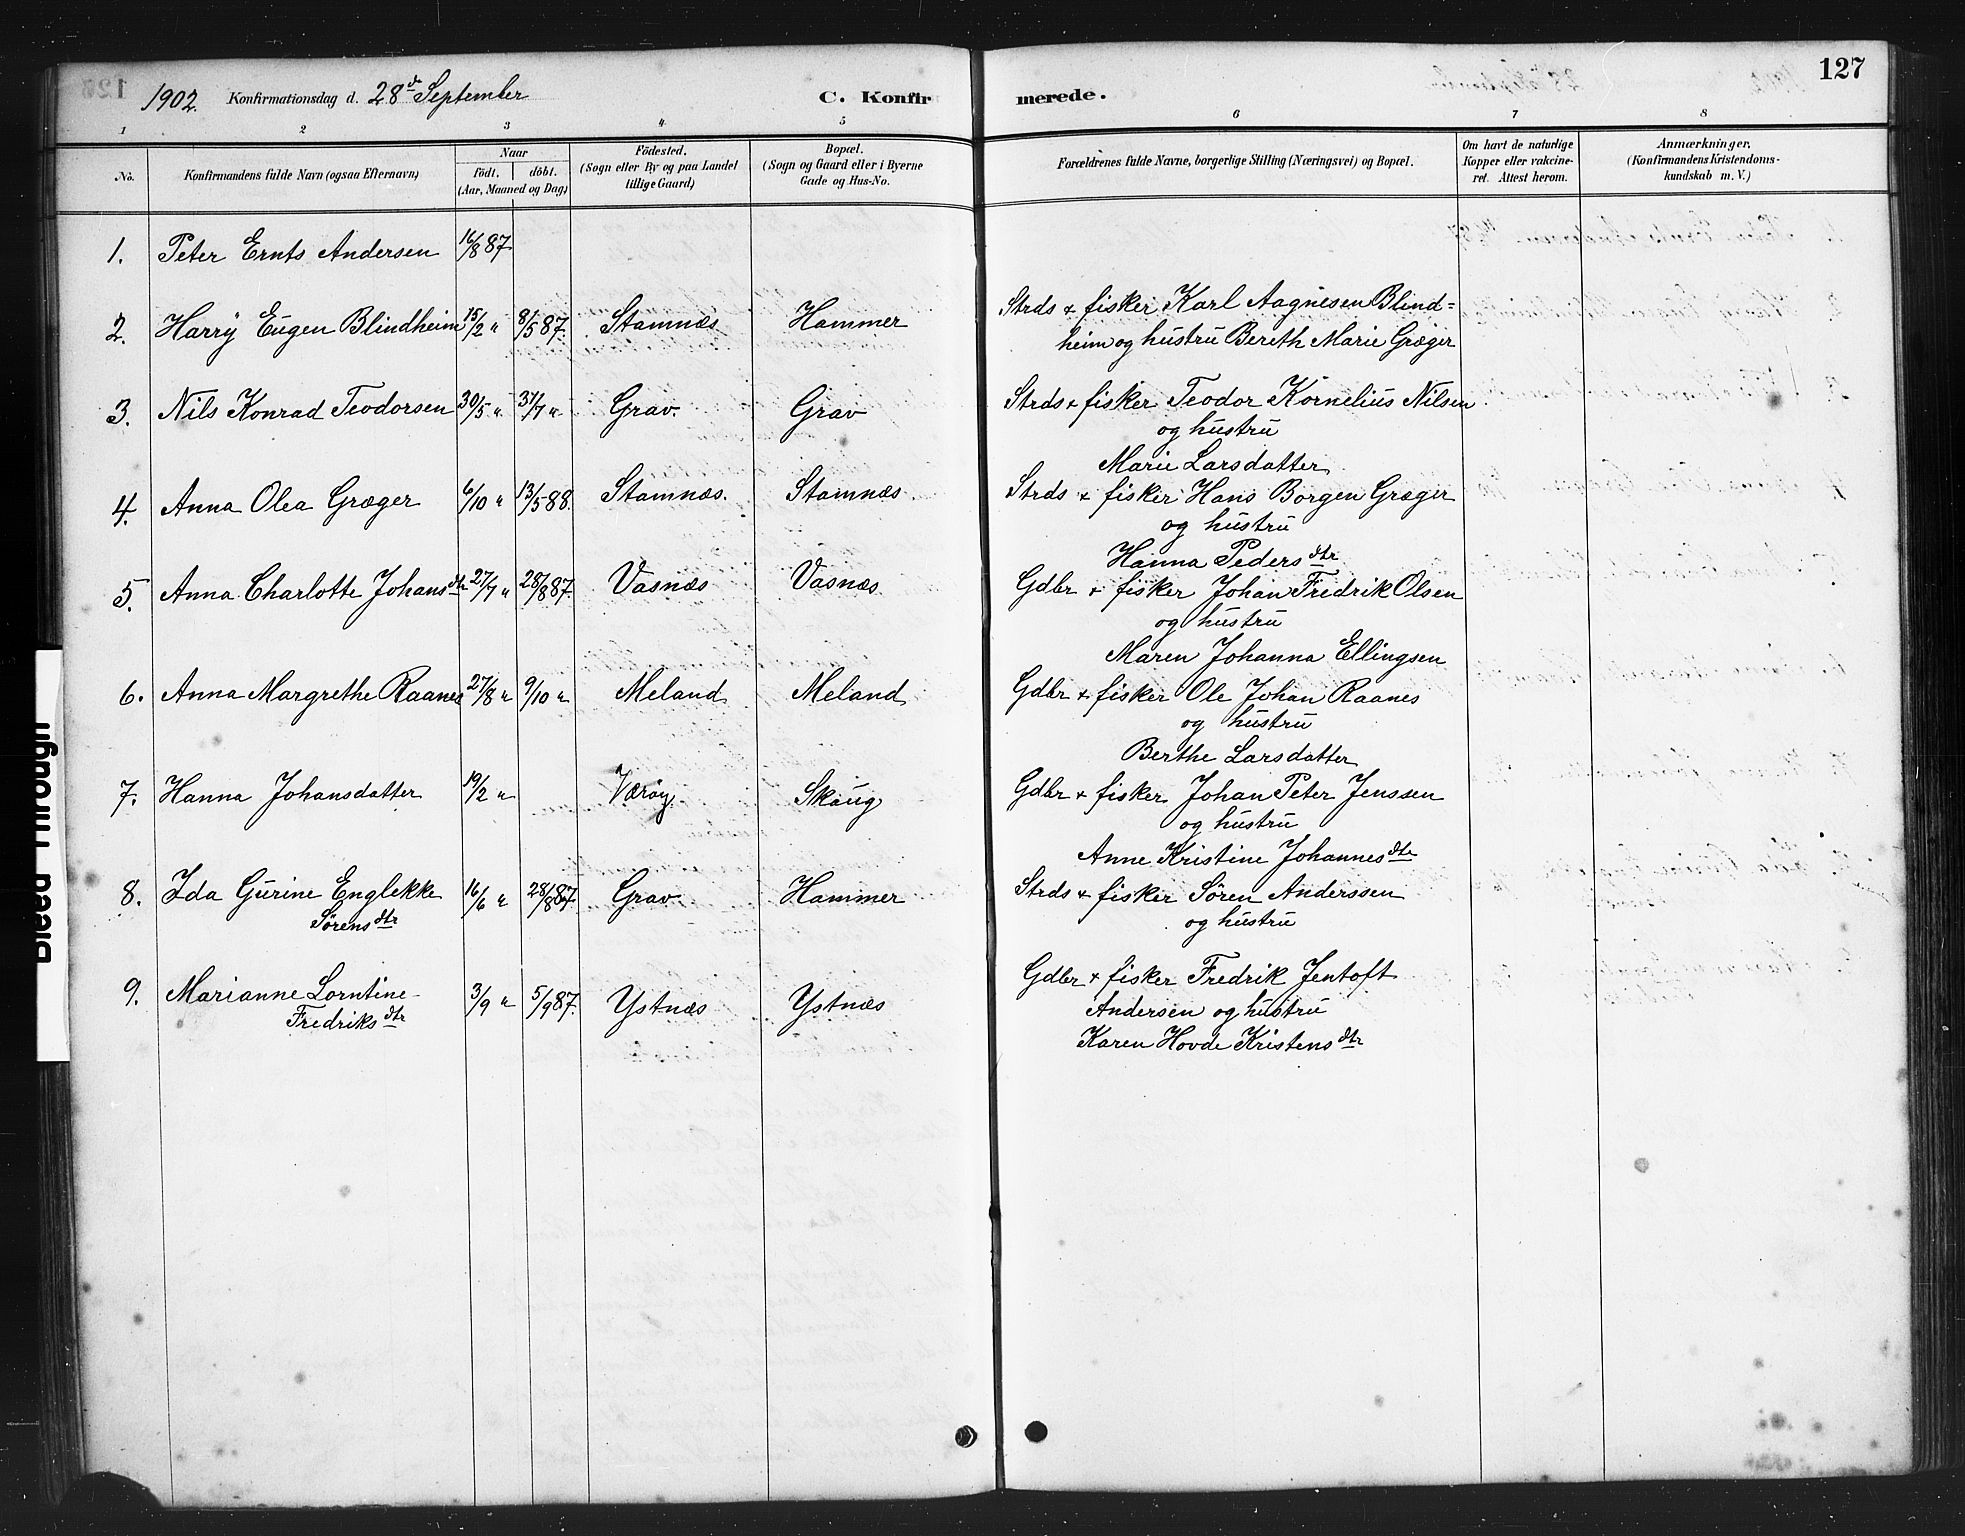 127
1902. Konfirmationsdag d. 28de September C. Konfirmerede.
1 2 3 4 5 6 7 8
No. Konfirmandens fulde Navn (ogsaa Efternavn)
Naar
födt. döbt.
(Aar, Maaned og Dag)
Födested.
(Sogn eller By og paa Landet
tillige Gaard)
Bopæl.
(Sogn og Gaard eller i Byerne
Gade og Hus-No.
Forældrenes fulde Navne, borgerlige Stilling (Næringsvei) og Bopæl.
Om havt de naturlige
Kopper eller vakcine-
ret. Attest herom.
Anmærkninger.
(Konfirmandens Kristendoms-
kundskab m. V.)
1. Peter Ernts Andersen 16/8 87.
2. Harry Eugen Blindheim 15/2 " 8/5 87. Stamnæs Hammer Strds + fisker Karl Aagnesen Blind=
heim og hustru Bereth Marie Græger
3. Nils Konrad Teodorsen 30/5 " 31/7 " Grav. Grav Strds + fisker Teodor Kornelius Nilsen
og hustru
Marie Larsdatter
4. Anna Olea Græger 6/10 " 13/5 88. Stamnæs. Stamnæs. Strds + fisker Hans Borgen Græger
og hustru
Hanna Pedersdtr
5. Anna Charlotte Johansdtr 27/7 " 28/8 87. Vasnæs Vasnæs. Gdbr + fisker Johan Fredrik Olsen
og hustru
Maren Johanna Ellingsen
6. Anna Margrethe Raanes 27/8 " 9/10 " Meland Meland Gdbr + fisker Ole Johan Raanes
og hustru
Berthe Larsdatter
7. Hanna Johansdatter 19/2 " Værøy. Skaug Gdbr + fisker Johan Peter Jenssen
og hustru
Anne Kristine Johannesdtr
8. Ida Gurine Englekke 16/6 " 28/8 87. Grav. Hammer Strds + fisker Søren Anderssen
Sørensdtr og hustru
9. Marianne Lorntine- 3/9 " 5/9 87. Ystnæs Ystnæs Gdbr + fisker Fredrik Jentoft
Fredriksdtr Andersen og hustru
Karen Hovde Kristensdtr